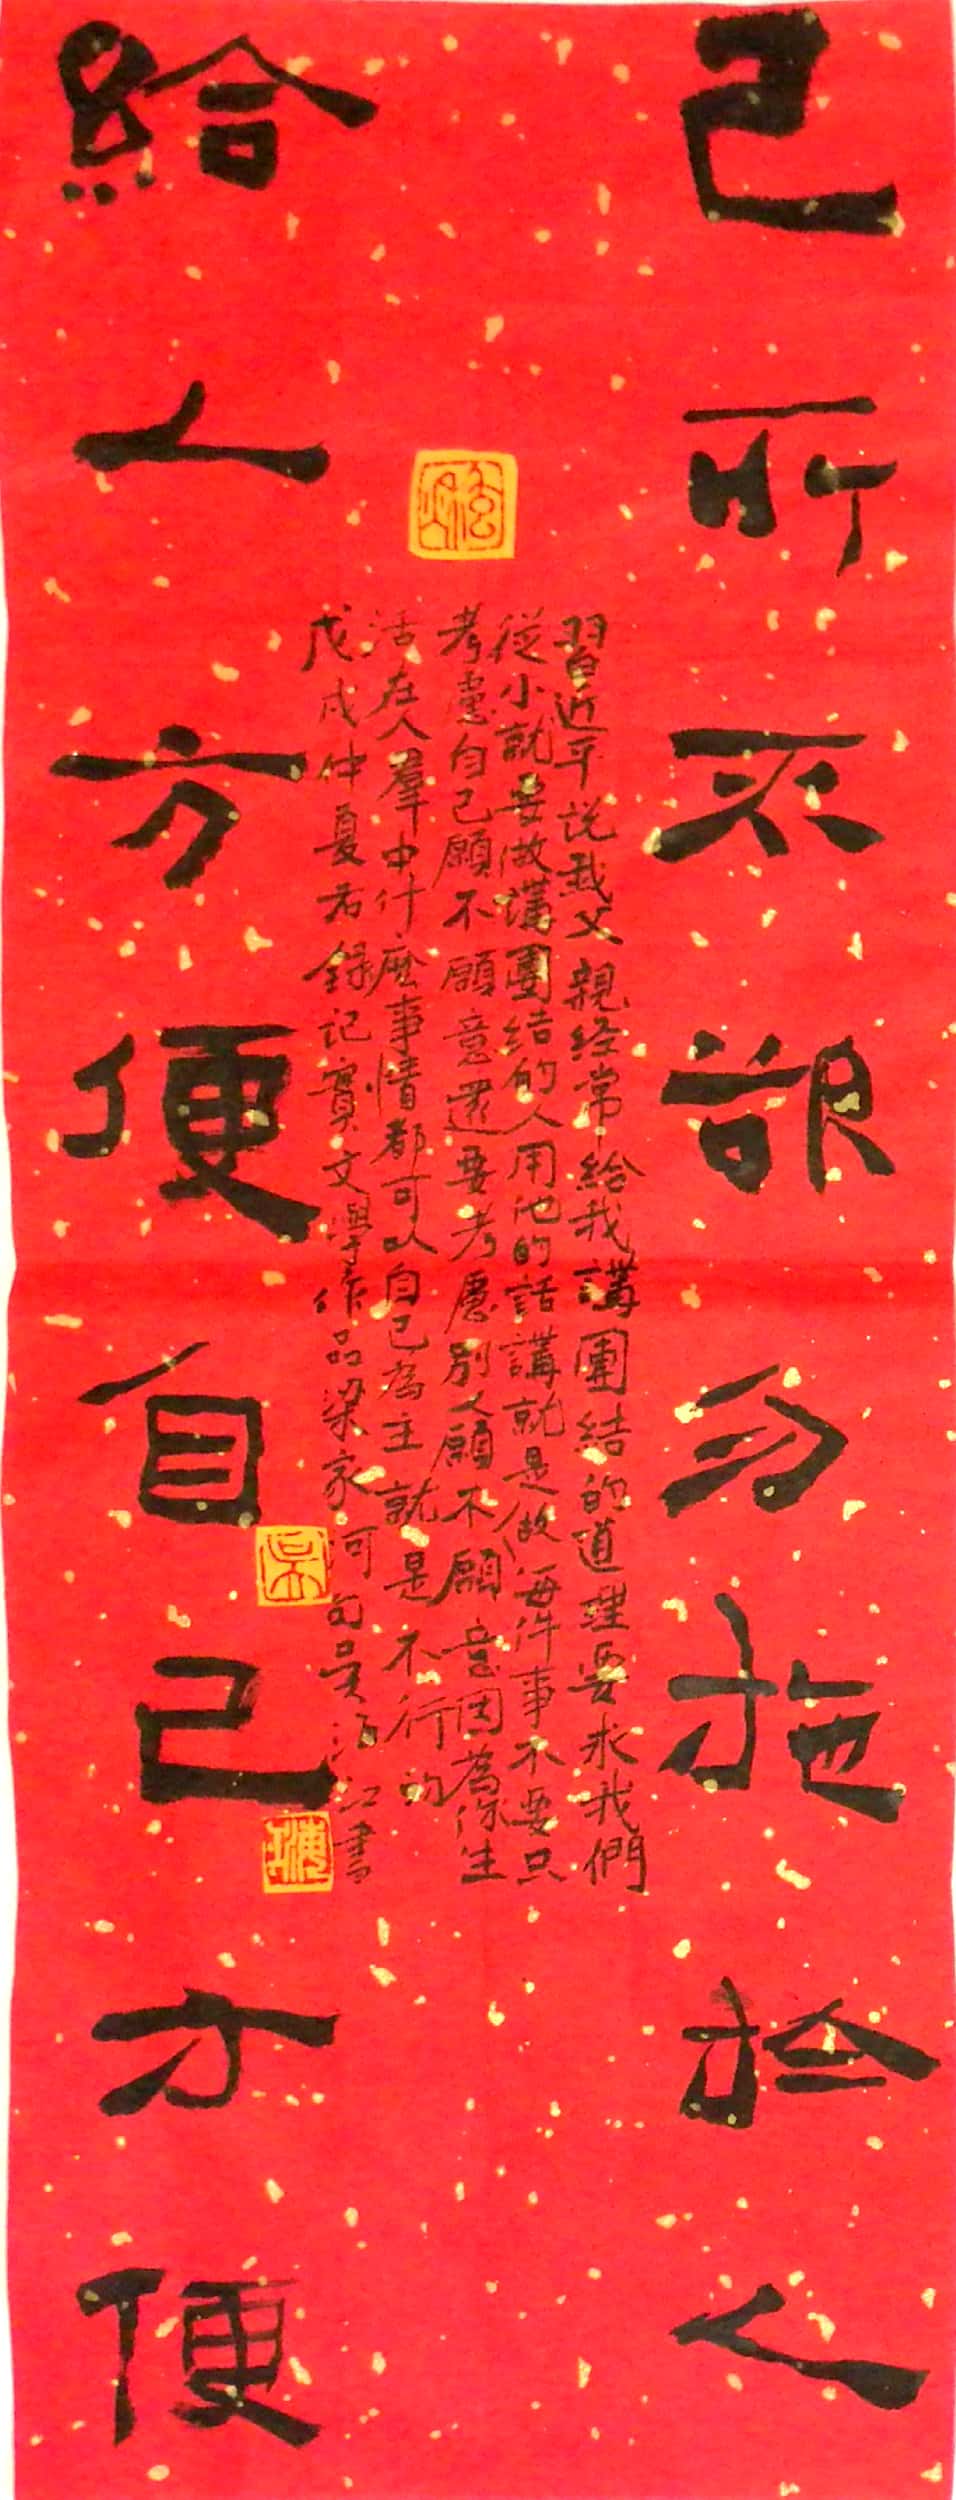 己所不欲勿施於人
習近平说我父親经常给我講團结的道理要求我們
從小就要做講團结的人用他的話講就是做每件事不要只
考慮自己願不願意還要考慮别人願不願意因為你生
活在人羣中什麽事情都可以自己為主就是不行的
戊戌仲夏右錄記實文學作品梁家河句吴海江書
给人方便自己方便